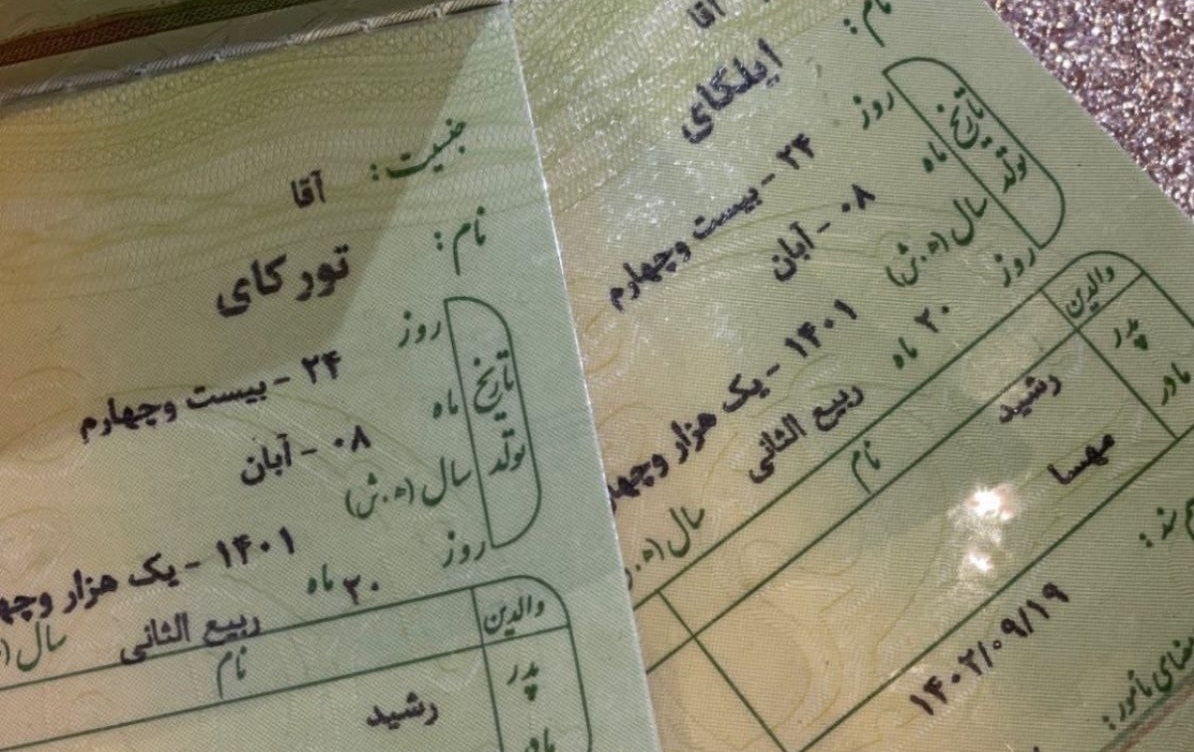 جنسیت: آقا
نام: تورکای
تاریخ تولد
روز ۲۴ - بیست وچهارم
ماه ۰۸ - آبان
سال (ه.ش) ۱۴۰۱ - یک هزار وچه
روز ۲۰ ماه ربیع الثانی سال (
والدین نام
پدر رشید
مادر
آقا
نام: ایلگای
تاریخ تولد
روز ۲۴ - بیست وچهارم
ماه ۰۸ - آبان
سال (ه.ش) ۱۴۰۱ - یک هزار وچه
روز ۲۰ ماه ربیع الثانی سال (ه.
والدین نام
پدر رشید
مادر مهسا
۱۴۰۲/۰۹/۱۹